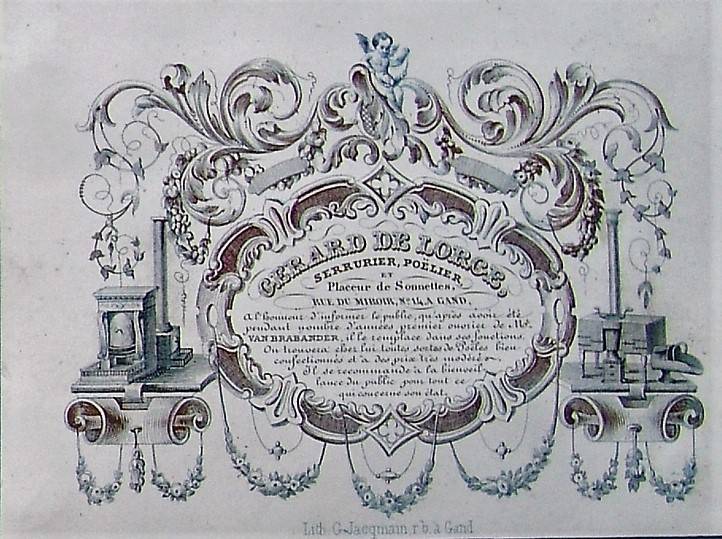 GERARD DE LORGE,
SERRURIER, POÊLIER,
ET
Placeur de Sonnettes,
RUE DU MIROIR, No. 14, A GAND.
A l'honneur d'informer le public, qu'après avoir été
pendant nombre d'années premier ouvrier de Mr.
VAN BRABANDER, il le remplace dans ses fonctions.
On trouvera chez lui toutes sortes de Poëles bien
confectionnés et à des prix très modérés.
Il se recommande à la bienveil-
lance du public pour tout ce
qui concerne son état.
Lith. G. Jacqmain, r. b. à Gand